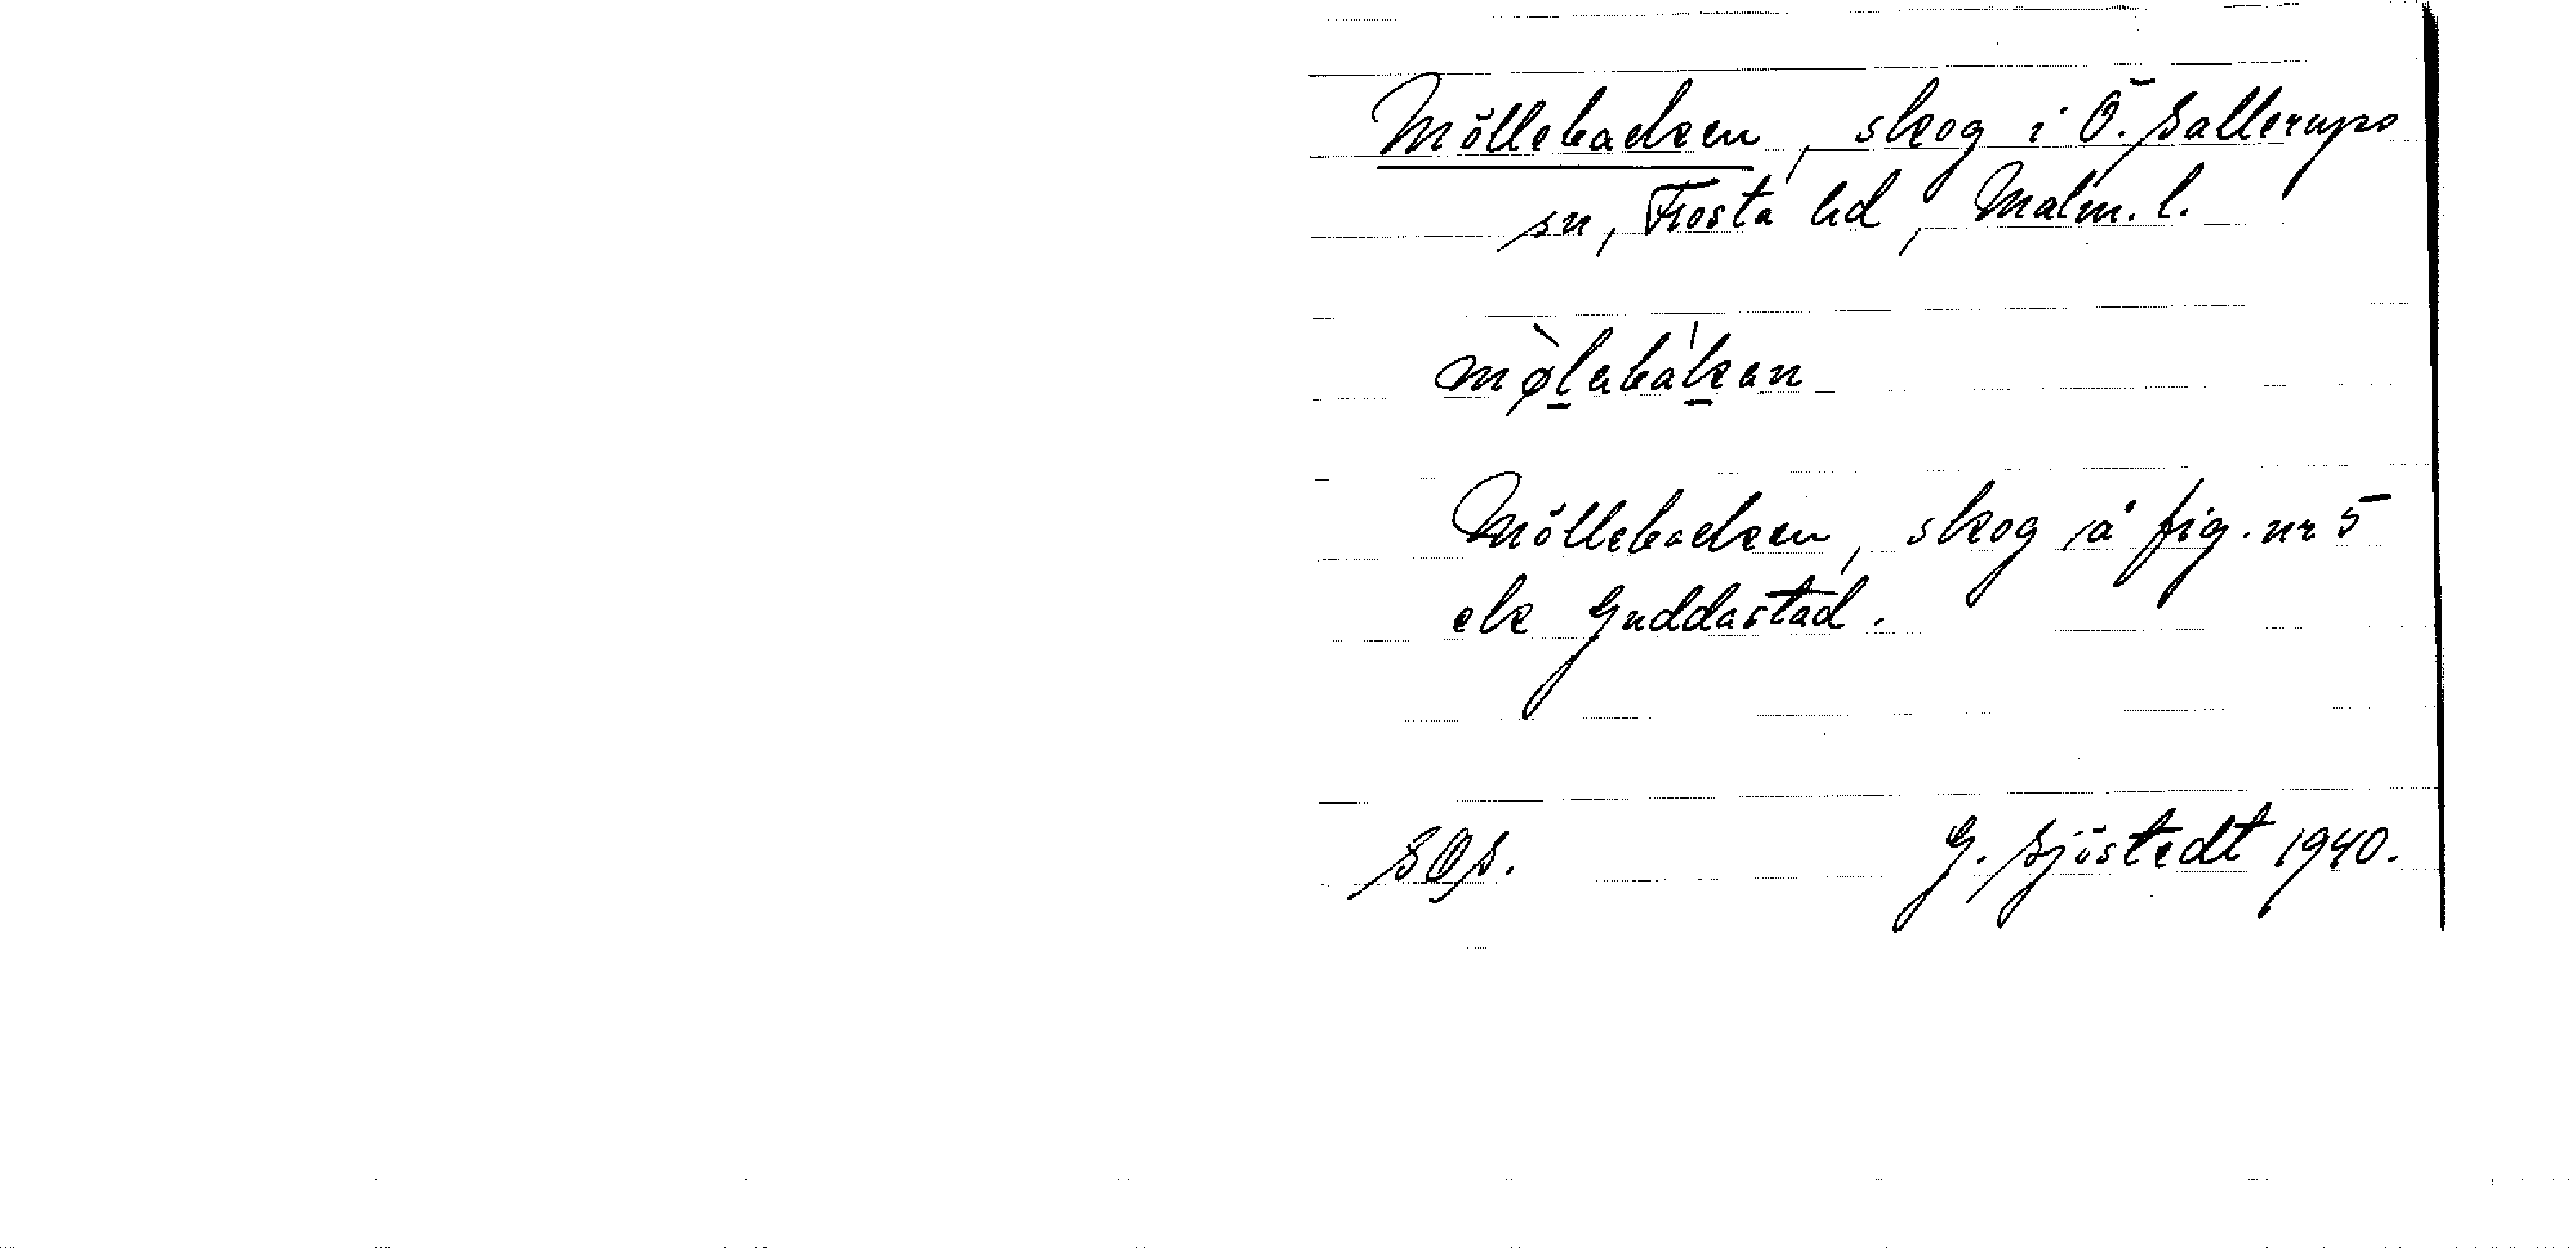 Möllebacken, skog i Ö. Sallerups
sn, Frosta hd, Malm. l.
mø̀lebàken
Möllebacken, skog å fig. nr 5
ek Guddastad.
SOS.
G. Sjöstedt 1940.